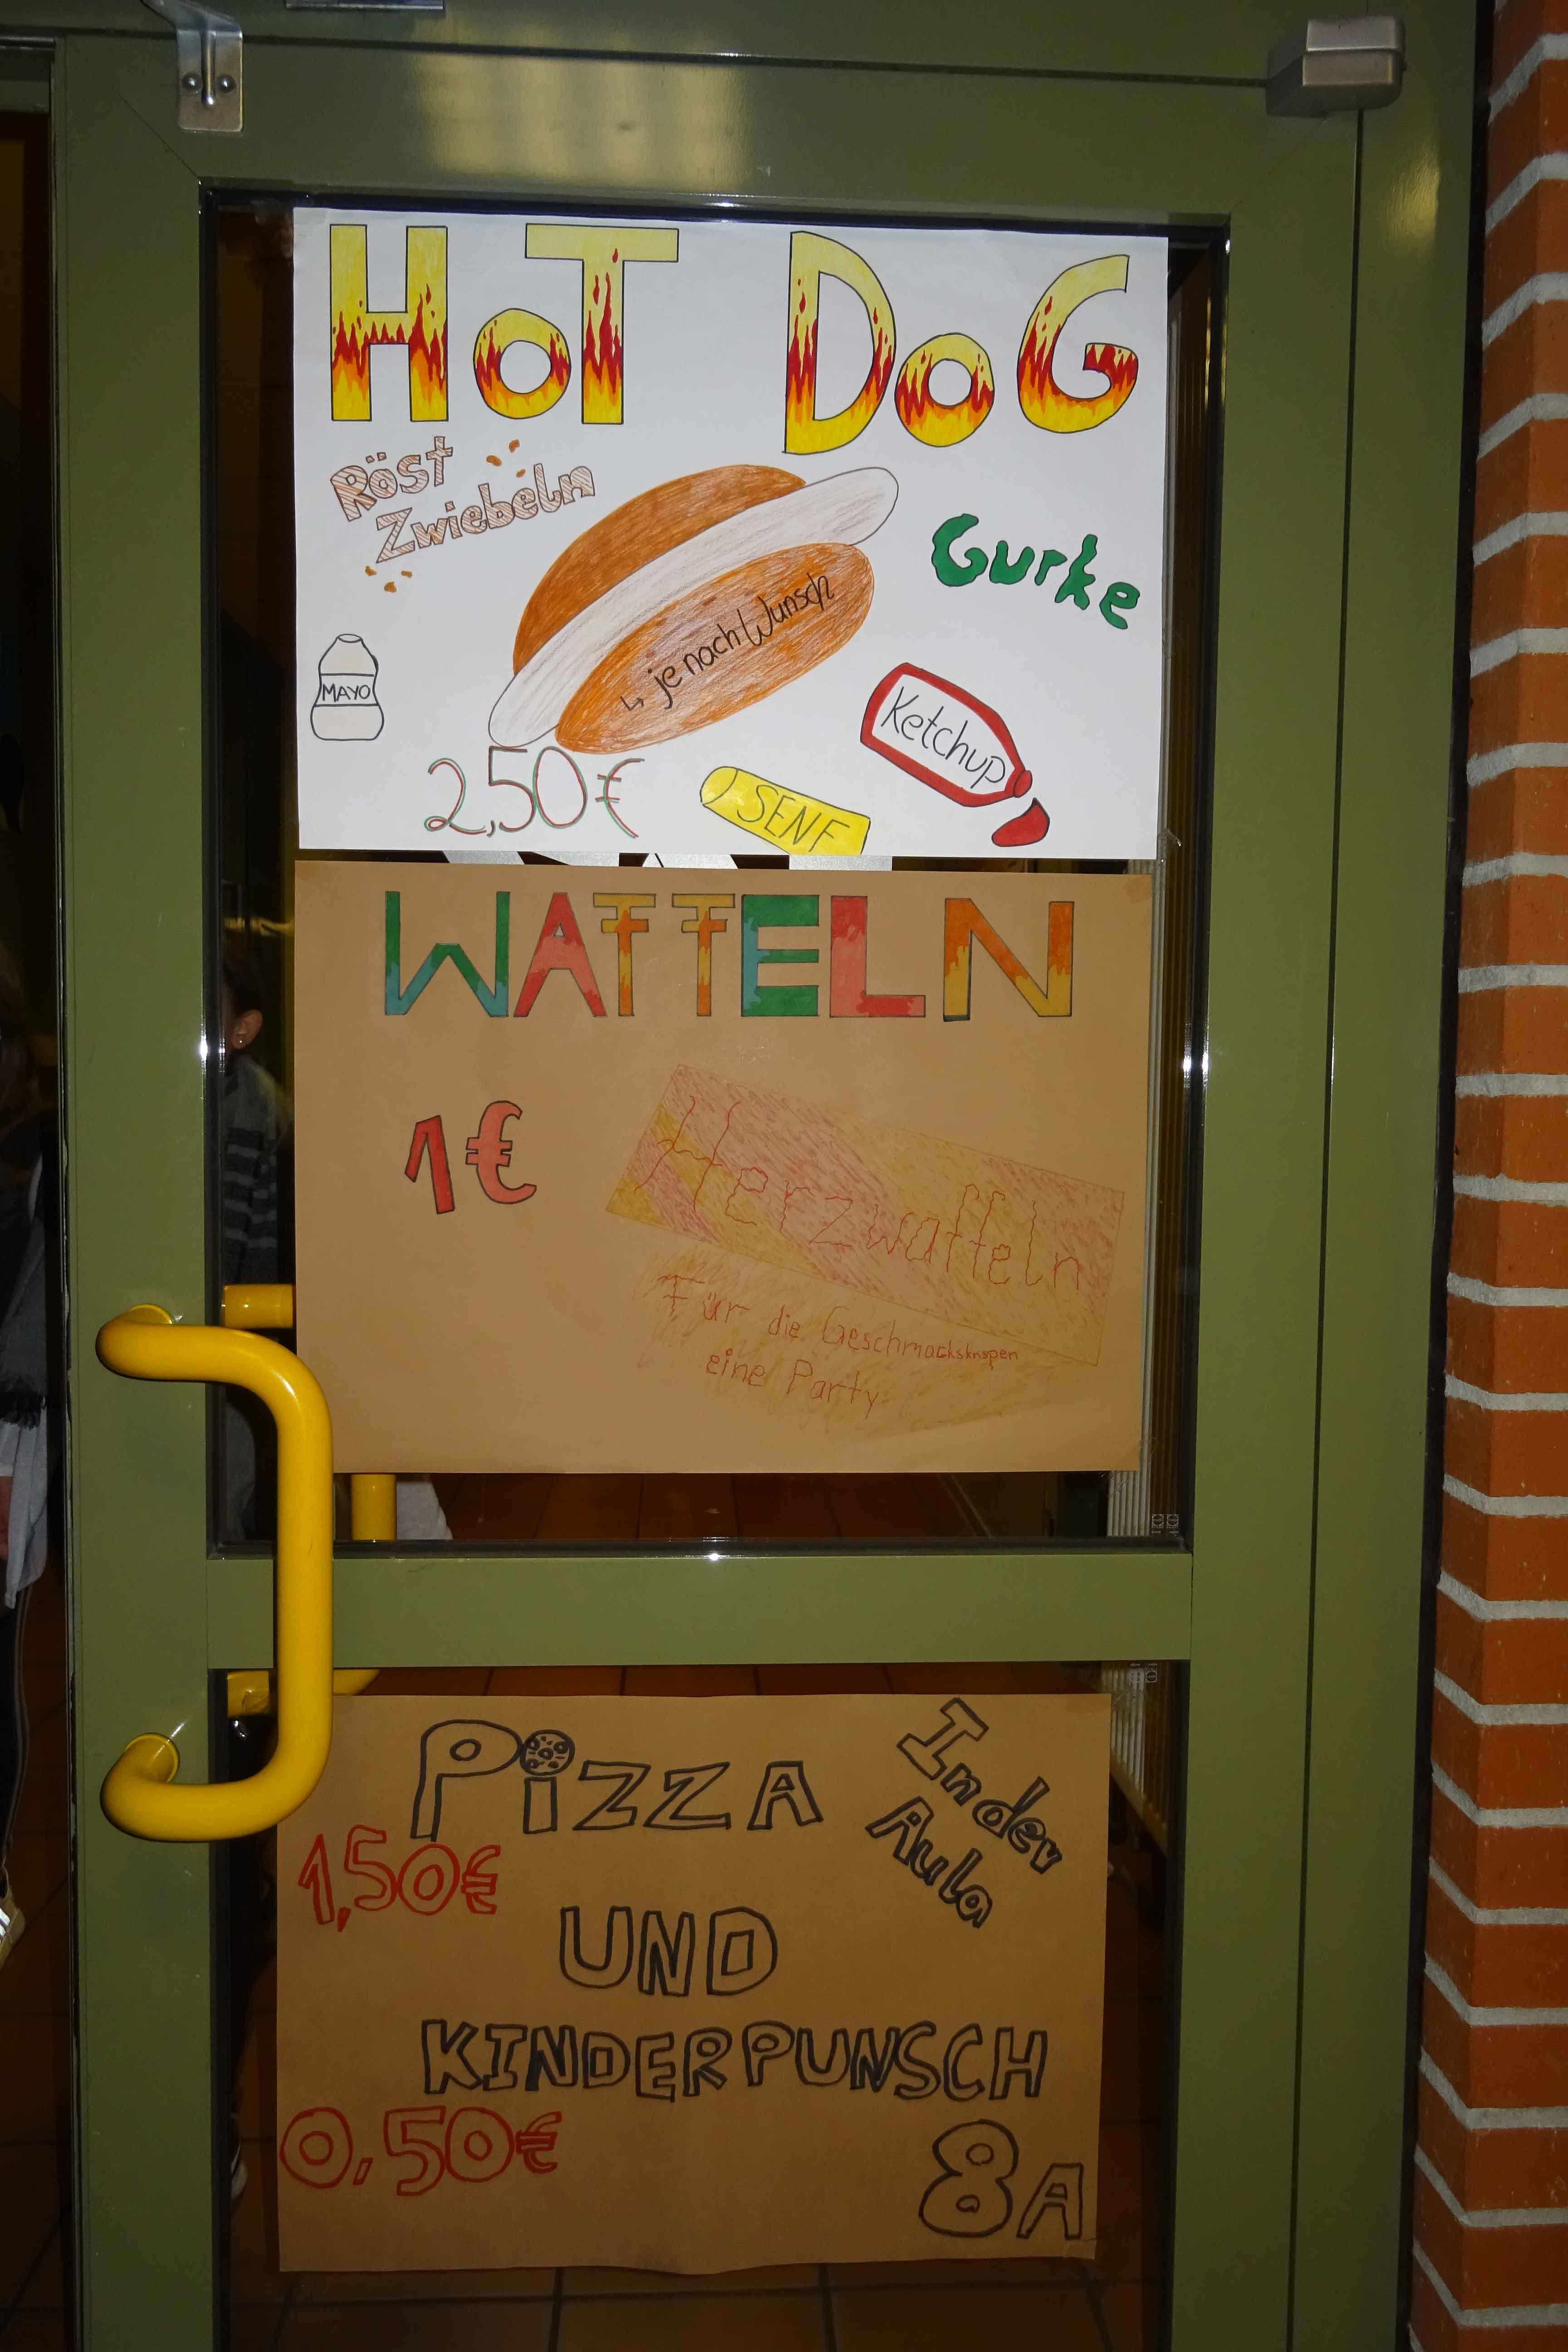 HOT DOG
Röst
Zwiebeln
Gurke
↳ je nach Wunsch
MAYO
Ketchup
2,50€
SENF
WAFFELN
1€
Herzwaffeln
Für die Geschmacksknspen
eine Party
PiZZA
In der
Aula
1,50€
UND
KINDERPUNSCH
0,50€
8A